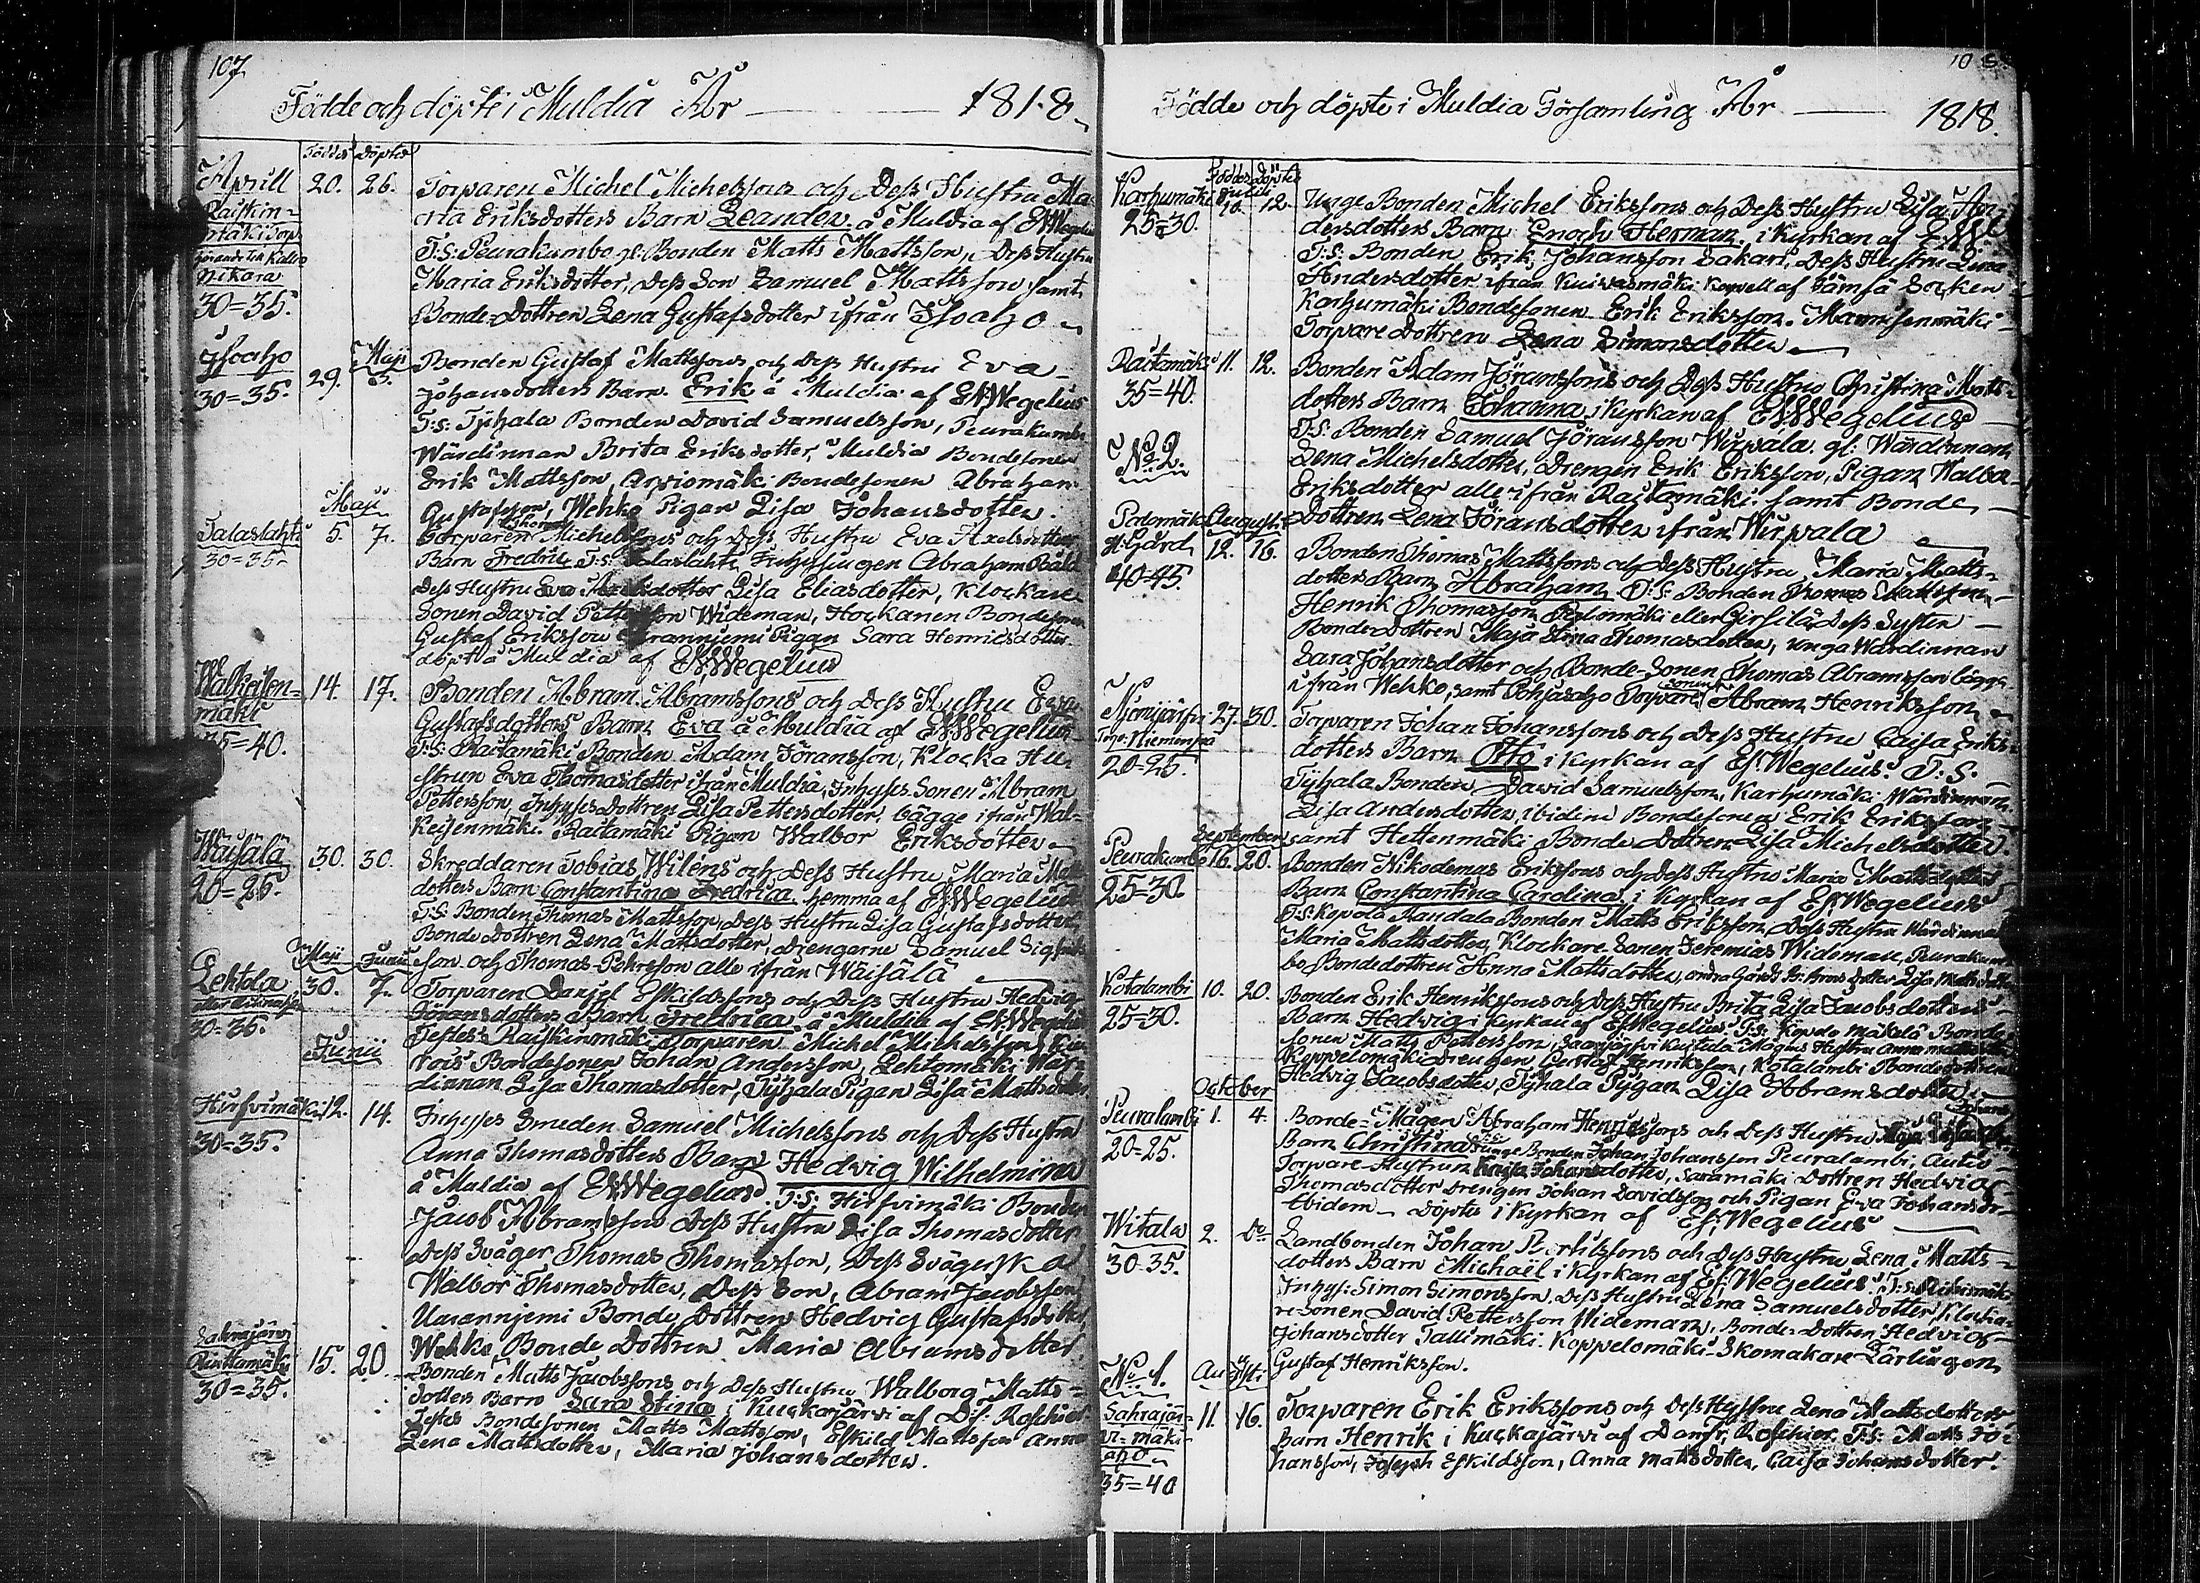 107
Födde och döpte i Muldia År — 1818.
Föddes döptes
Aprill 20. 26. Torparen Michel Michelssons och Dess Hustru Ma-
ria Eriksdotters Barn Leander å Muldia af EWWegelius
T:S: Peurakumbo gl: Bonden Matts Mattsson, Dess Hustru
Nikara Maria Eriksdotter, Dess Son Samuel Mattsson, samt
30=35. Bonde-Dottren Lena Gustafsdotter ifrån Isoaho
Isoaho 29. Maji 3. Bonden Gustaf Mattssons och Dess Hustru Eva
30=35. Johansdotters Barn Erik å Muldia af EWWegelius
T:S: Tyhala Bonden David Samuelsson, Peurakumbo
Wärdinnan Brita Eriksdotter, Muldia Bondesonen
Erik Mattsson, Arviomäki Bondesonen Abraham
Maji Gustafsson, Wehko Pigan Lisa Johansdotter.
Salaslahti 5. 7. Torparen Michelssons och Dess Hustru Eva Axelsdotters
30=35. Barn Fredric T:S: Salaslahti Inhysingen Abraham
Dess Hustru Eva Lisa Eliasdotter, Klockare
Sonen David Pettersson Wideman, Hockanen Bondesonen
Gustaf Eriksson Pigan Sara Henricsdotter
döpt å Muldia af EWWegelius
Walkeisen= 14. 17. Bonden Abram Abramssons och Dess Hustru Eva
mäki Gustafsdotters Barn Eva å Muldia af EWWegelius
35=40. T:S: Raitamäki Bonden Adam Jöransson, Klocka Hu-
strun Eva Thomasdotter ifrån Muldia, Inhyses Sonen Abram
Pettersson, Inhyses Dottren Lisa Pettersdotter, bägge ifrån Wal-
keisenmäki. Raitamäki Pigan Walbor Eriksdotter
Wäisälä 30. 30. Skreddaren Tobias Wilens och Dess Hustru Maria Matts
20=25. dotters Barn Constantina Fredrica hemma af EWWegelius
T:S: Bonden Thomas Mattsson, Dess Hustru Lisa Gustafsdotter
Bonde Dottren Lena Mattsdotter, Drengarne Samuel
Maji Junii son och Thomas Pehrsson alle ifrån Wäisälä
Lehtola 30. 7. Torparen Daniel Eskildssons och Dess Hustru Hedvig
30=35. Göransdotters Barn Fredrica å Muldia af EWWegelius
Testes Raiskinmäki Torparen Michel Michelsson
Junii Bondesonen Johan Andersson, Lehtomäki Wär-
dinnan Lisa Thomasdotter, Tyhala Pigan Lisa Mattsdotter
Hirsvimäki 12. 14. Inhyses Smeden Samuel Michelssons och Dess Hustru
30=35. Anna Thomasdotters Barn Hedvig Wilhelmina
å Muldia af EWWegelius T:S: Hirsvimäki Bonden
Jacob Abramsson Dess Hustru Lisa Thomasdotter
Dess Svåger Thomas Thomasson, Dess Svägerska
Walbor Thomasdotter, Dess Son, Abram Jacobsson
Bonde Dottren Hedvig Gustafsdotter
Wehko Bonde Dottren Maria Abramsdotter
Sahrajärvi 15. 20. Bonden Matts Jacobssons och Dess Hustru Walborg Matts=
30=35. dotters Barn Sara Stina i Kuckajärvi af
Testes Bondesonen Matts Mattsson, Eskild Mattsson Anna
Lena Mattsdotter, Maria Johansdotter.
Födde och döpte i Muldia Församling År — 1818.
Föddes Döptes
Karhumäki Julii 10. 12. Unge Bonden Michel Erikssons och Dess Hustru Lisa An-
25=30. dersdotters Barn Enoch Herman i Kyrkan af
T:S: Bonden Erik Johansson Sakari, Dess Hustru Lena
Andersdotter ifrån Kuivasmäki Kapell af Jämsä Socken
Karhumäki Bondesonen Erik Eriksson. Mannisenmäki
Torpare Dottren Lena Simonsdotter
Raitamäki 11. 12. Bonden Adam Jöranssons och Dess Hustru Christina Matts-
35=40. dotters Barn Johanna i Kyrkan af EWWegelius
T:S: Bonden Samuel Jöransson Wirvala gl: Wärdinnan
No. 2. Lena Michelsdotter, Drengen Erik Eriksson, Pigan Walbor
Eriksdotter alle ifrån Raitamäki samt Bonde
Augusti Dottren Lena Jöransdotter ifrån Wirvala
H:Gård 12. 16. Bonden Thomas Mattssons och Dess Hustru Maria Matts-
40=45. dotters Barn Abraham T:S: Bonden Thomas Mattsson,
Henrik Thomasson Palomäki eller Dess Syster
Bonde Dottren Maja Stina Thomasdotter, unga Wärdinnan
Sara Johansdotter och Bonde-Sonen Thomas Abramsson bägge
ifrån Wehko, samt Pohjasaho Torpare Sonen Abram Henriksson
27. 30. Torparen Johan Johanssons och Dess Hustru Caisa Eriks
20=25. dotters Barn Otto i Kyrkan af Ef: Wegelius. T:S:
Tyhala Bonden David Samuelsson, Karhumäki Wärdinnan
Lisa Andersdotter, ibidem Bondesonen Erik Eriksson
September samt Hettenmäki Bonde Dottren Lisa Michelsdotter.
Peurakumbo 16. 20. Bonden Nikodemus Erikssons och Dess Hustru Maria Mattsdotters
25=30. Barn Constantina Carolina i Kyrkan af Ef: Wegelius
T:S: Bonden Matts Eriksson, Dess Hustru Wärdinnan
Maria Mattsdotter, Klockare Sonen Jeremias Wideman, Peurakum-
bo Bondedottren Anna Mattsdotter,
Kotalambi 10. 20. Bonden Erik Henrikssons och Dess Hustru Brita Lisa Jacobsdotters
25=30. Barn Hedvig i Kyrkan af Ef: Wegelius T:S: Mäkelä Bonde
sonen Matts Pettersson,
Koppelomäki Drengen Gustaf Henriksson, Kotalambi Bondedottren
October Hedvig Jacobsdotter, Tyhala Pigan Lisa Abramsdotter
Peuralambi 1. 4. Bonde-Mågen Abraham Henrikssons och Dess Hustru Maja
20=25. Barn Christina unge Bonden Johan Johansson Peuralambi,
Torpare Hustrun Johansdotter, Saramäki Dottren Hedvig
Thomasdotter Drengen Johan Davidsson och Pigan Eva Johansdr
ibidem — Döpte i Kyrkan af Ef: Wegelius
Witala 2. Do Landbonden Johan Perttilssons och Dess Hustru Lena Matts-
30=35. dotters Barn Michaël i Kyrkan af Ef: Wegelius. T:S:
Inhys: Simon Simonsson. Dess Hustru Lena Samuelsdotter, Klocka-
re-Sonen David Pettersson Wideman, Bonde-Dottren Hedvig
Johansdotter Tallimäki. Koppelomäki Skomakare-Lärlingen
No. 1. Augusti Gustaf Henriksson.
Sahrajär- 11. 16. Torparen Erik Erikssons och Dess Hustru Lena Mattsdotters
vi-mäki Barn Henrik i Kuckajärvi af T:S: Matts Jo-
aho hansson, Joseph Eskildsson, Anna Mattsdotter, Caisa Johansdotter.
35=40